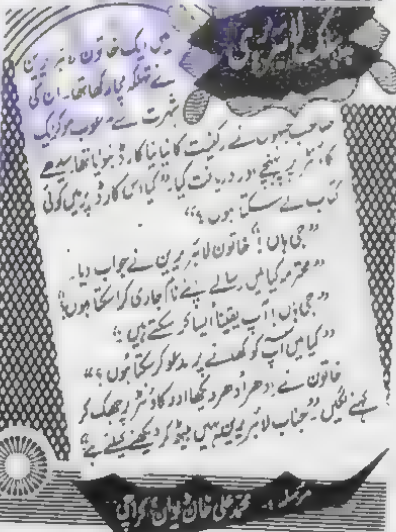 پبلک لائبریری
میں ایک خاتون لائبریرین
نے تہلکہ مچا رکھا تھا۔ ان کی
شہرت سے مرعوب ہو کر ایک
صاحب جنہوں نے رکنیت کا نیا نیا کارڈ بنوایا تھا سیدھے
کاؤنٹر پر پہنچے اور دریافت کیا۔ "کیا اس کارڈ پر میں کوئی
کتاب لے سکتا ہوں؟"
"جی ہاں!" خاتون لائبریرین نے جواب دیا۔
"محترمہ کیا میں رسالے اپنے نام جاری کرا سکتا ہوں؟"
"جی ہاں! آپ یقیناً ایسا کر سکتے ہیں۔"
"کیا میں آپ کو کھانے پر مدعو کر سکتا ہوں؟"
خاتون نے اِدھر اُدھر دیکھا اور کاؤنٹر پر جھک کر
کہنے لگیں۔ "جناب لائبریرین یہیں بیٹھ کر دیکھنے کیلئے ہے"
مرسلہ:۔ محمد علی خان کراچی